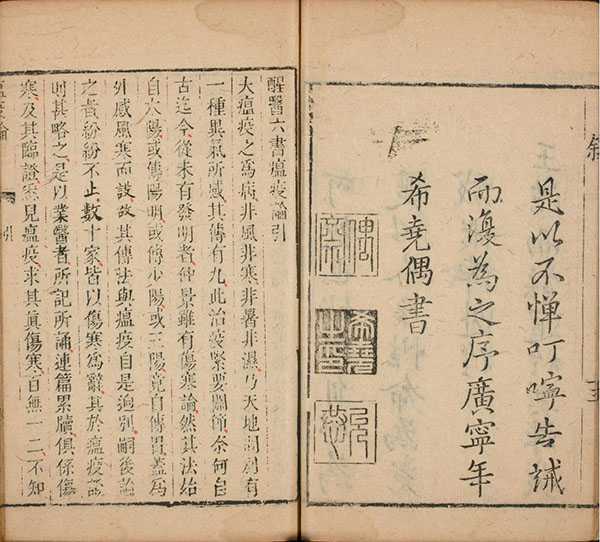 叙
是以不憚叮嚀告誡
而復為之序廣寧年
希堯偶書
希堯之印
醒醫六書瘟疫論引
夫瘟疫之爲病非風非寒非暑非濕乃天地間別有
一種異氣所感其傳有九此治疫緊要關節奈何自
古迄今從未有發明者仲景雖有傷寒論然其法始
自太陽或傳陽明或傳少陽或三陽竟自傳胃蓋爲
外感風寒而設故其傳法與瘟疫自是逈別嗣後論
之者紛紛不止數十家皆以傷寒爲辭其於瘟疫證
則甚略之是以業醫者所記所誦連篇累牘俱係傷
寒及其臨證悉見瘟疫求其眞傷寒百無一二不知
瘟疫論 引